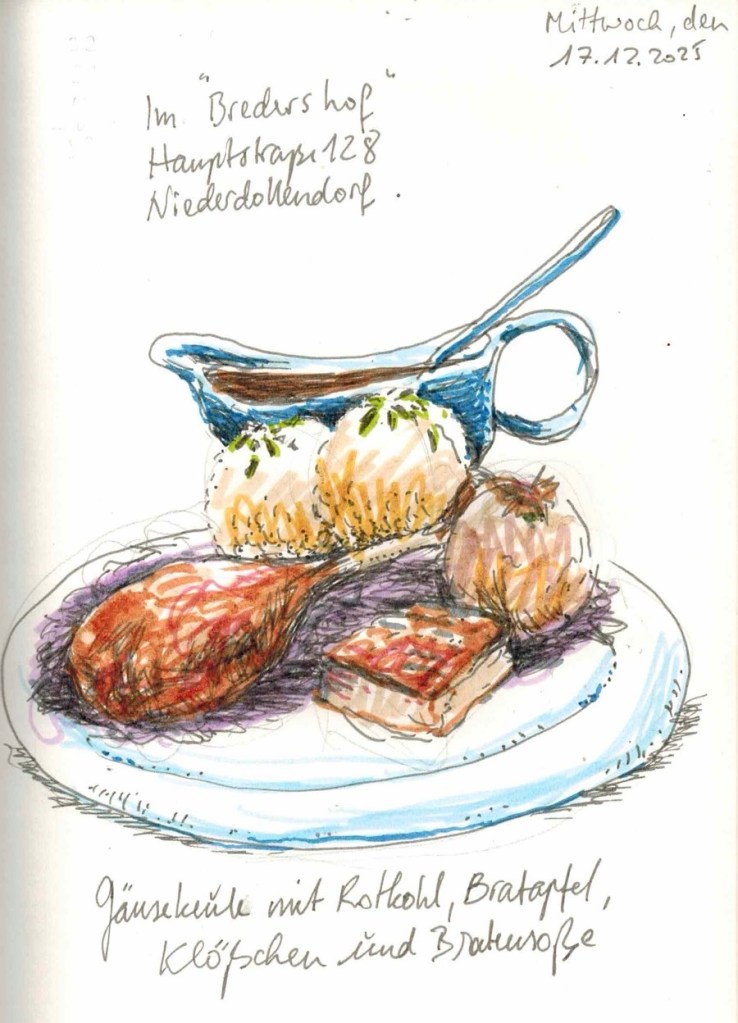 Mittwoch, den
17.12.2025
Im "Bredershof"
Hauptstraße 128
Niederdollendorf.
Gänsekeule mit Rotkohl, Bratapfel,
Klößchen und Bratensoße